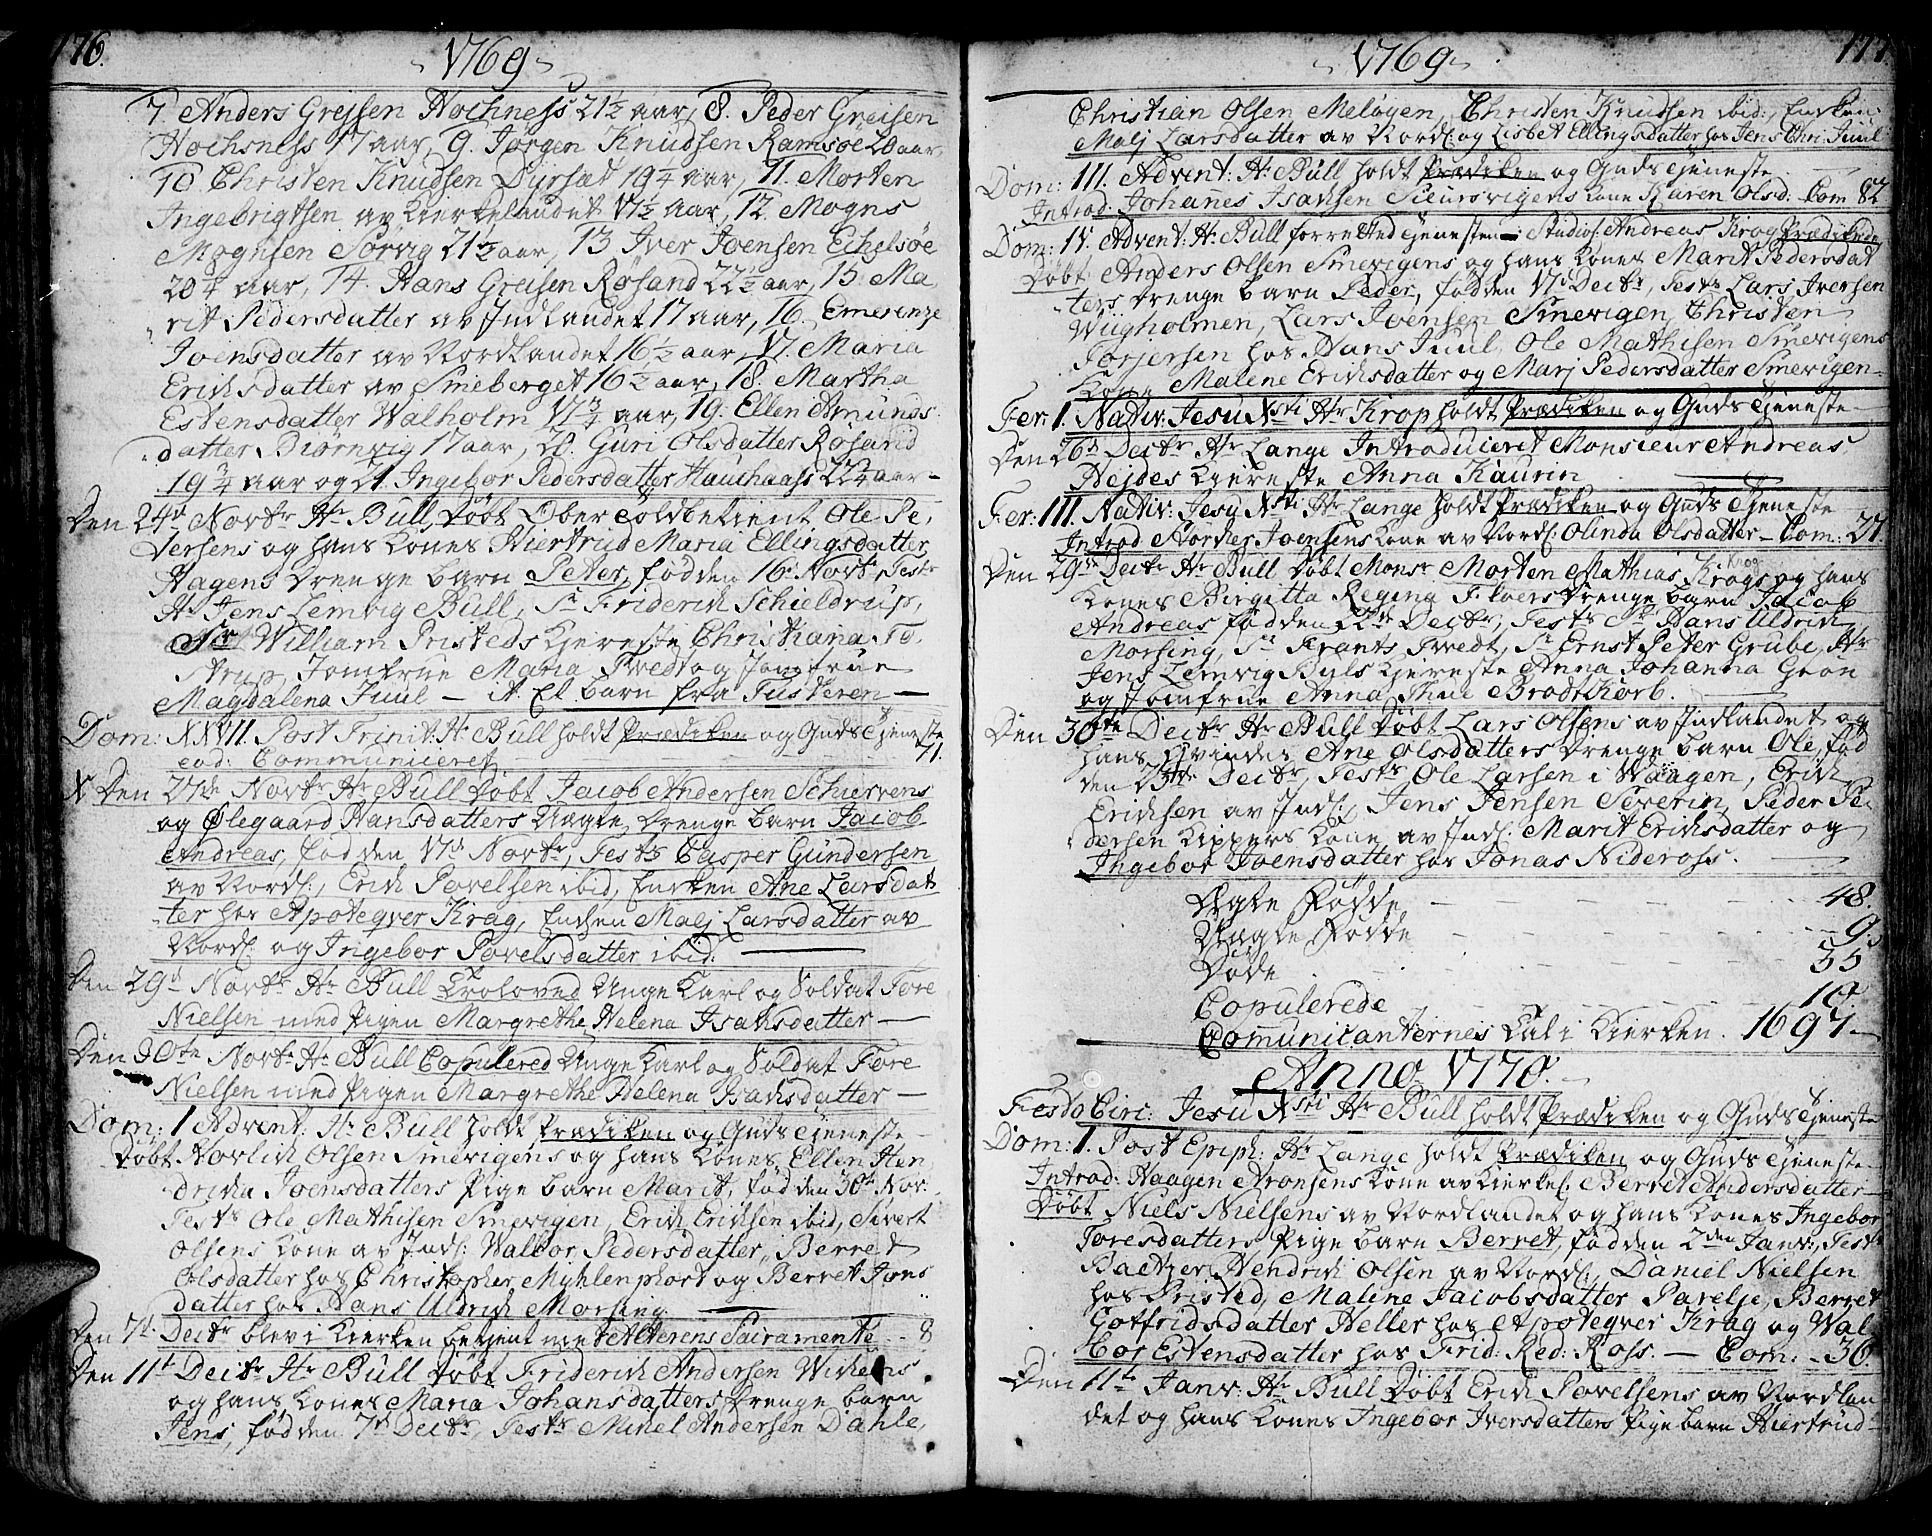 176.
1769
7. Anders Grejsen Hochness 21½ aar, 8. Peder Greisen
Hochsness 17 aar, 9. Jørgen Knudsen Ramsöe 20 aar,
10 Christen Knudsen Dyrsæt 19¼ aar, 11. Morten
Ingebrigtsen av Kierkelandet 17½ aar, 12. Mogns
Mognsen Sørvig 21½ aar, 13 Iver Joensen Echelsöe
20¼ aar, 14. Hans Greisen Røsand 22½ aar, 15. Ma
rit Pedersdatter av Indlandet 17 aar, 16. Emerenze
Joensdatter av Nordlandet 16½ aar, 17. Maria
Erichsdatter av Smeberget 16½ aar, 18. Martha
Estensdatter Walholm 17¾ aar, 19. Ellen Amunds
datter Biørnvig 17 aar, 20. Guri Olsdatter Røsand
19¾ aar og 21. Ingebor Pedersdatter Hauchaass 22¼ aar
Den 24d Novbr Hr Bull Døbt Ober Toldbetient Ole Pe,
dersens og hans Kones Hiertrud Maria Ellingsdatter
Hagens Drenge barn Peter, fød den 16d Novbr, Test:
Hr Jens Lemvig Bull, Sr Friderich Schieldrup,
Sr William Pristeds Kjereste Christiana To,
Strup, Jomfrue Maria Tvedt og Jomfrue
Magdalena Juul — N. Et barn fra Tusteren —
Dom: XXVII. Post Trinit: Hr Bull holdt Prædiken og Guds Tjeneste
eod: Communiceret 71.
X Den 27de Novbr Hr Bull Døbt Jacob Andersen Schiervens
og Ølegaard Hansdatters Uægte Drenge barn Jacob
Andreas, fød den 17d Novbr, Test: Casper Gundersen
av Nordl:, Erich Povelsen ibid, Enken Ane Larsdat
ter hos Apoteqver Krag, Enchen Malj Larsdatter av
Nordl: og Ingebor Povelsdatter ibid:
Den 29d Novbr Hr Bull Troloved Unge Karl og Soldat Tore
Nielsen med Pigen Margrethe Helena Isachsdatter —
Den 30te Novbr Hr Bull Copulered Unge Karl og Soldat Tore
Nielsen med Pigen Margrethe Helena Isachsdatter —
Dom: 1 Advent: Hr Bull holdt Prædiken og Guds Tjeneste
Døbt Olsen Smevigens og hans Kones Ellen Hen
dricha Joensdatters Pige barn Marit, fød den 30d Nov:
Test: Ole Mathisen Smevigen, Erich Erichsen ibid, Sivert
Olsens Kone av Indl: Walbor Pedersdatter, Berret
Olsdatter hos Christopher Myhlenphort og Berret Jons
datter hos Hans Uldrich Morsing
Den 7d. Decbr blev i Kierken betjent med Alterens Sacramente 8
Den 11t Decbr Hr Bull Døbt Friderich Andersen Wichens
og hans Kones Maria Johansdatters Drenge barn
Jens, fød den 7d Decbr, Test: Michel Andersen Dahle,
177
1769
Christian Olsen Meløyen, Christen Knudsen ibid:, Enken
Malj Larsdatter av Nordl: og Lisbet Ellingsdatter hos Jens Chr: Juul
Dom: III. Advent: Hr Bull holdt Prædiken og Guds Tjeneste
Introd: Johanes Isachsen Sieursvigens Kone Karen Olsd: Com 82
Dom: IV. Advent: Hr Bull forretted Tjenesten Studios: Andreas Krog Prædikede
Døbt Anders Olsen Smevigens og hans Kones Marit Pedersdat
ters Drenge barn Peder, fød den 17d Decbr, Test: Lars Iversen
Wüigholmen, Lars Joensen Smevigen, Christen
Torjersen hos Hans Juul, Ole Mathisen Smevigens
Kone Malene Erichsdatter og Marj Pedersdatter Smevigen
Fer: 1. Nativ: Jesu Xsti Hr Krop holdt Prædiken og Guds Tjeneste
Den 26d Decbr Hr Lange Introduceret Monsieur Andreas
Hejdes Kjereste Anna Kaurin
Fer: III. Nativ: Jesu Xsti Hr Lange holdt Prædiken og Guds Tjeneste
Introd Joensens Kone av Nordl: Olinda Olsdatter — Com: 27.
Den 29de Decbr Hr Bull Døbt Monsr Morten Mathias Krogs og hans
Kones Birgitta Regina Floers Drenge barn Jacob
Andreas fød den 22de Decbr, Test: Sr Hans Uldrich
Morsing, Sr Frants Tvedt, Sr Ernst Peter Grube, Hr
Jens Lemvig Buls Kjereste Anna Johanna Grøn
og Jomfrue Anna Thue Brodtkorb.
Den 30te Decbr Hr Bull Døbt Lars Olsens av Indlandet og
hans Qvindes Ane Olsdatters Drenge barn Ole, fød
den 23de Decbr, Test: Ole Larsen i Waagen, Erich
Erichsen av Indl:, Jens Jensen Severin, Peder Pe
dersen Kippers Kone av Indl: Marit Erichsdatter og
Ingebor Joensdatter hos Jonas Nideross.
Ægte Fødde 48.
Uægte Fødde 9.
Døde 55
Copulerede 10.
Communicanternes Tal i Kierken. 1697
Anno 1770.
Festo Circ: Jesu Xsti Hr Bull holdt Prædiken og Guds Tjeneste
Dom: 1. Post Epiph: Hr Lange holdt Prædiken og Guds Tjeneste
Introd: Haagen Aronsens Kone av Kierkel: Berret Andersdatter
Døbt Niels Nielsens av Nordlandet og hans Kones Ingebor
Toresdatters Pige barn Berret, fød den 2den Janv:, Test:
Baetzer Hendrich Olsen av Nordl:, Daniel Nielsen
hos Pristed, Maline Jacobsdatter Parelje, Berret
Gotfridsdatter Heller hos Apoteqver Krag og Wal
bor Estensdatter hos Frid: Red: Ross. — Com: 36.
Den 11t Janv: Hr Bull Døbt Erich Povelsens av Nordlan
det og hans Kones Ingebor Iversdatters Pige barn Hiertrud